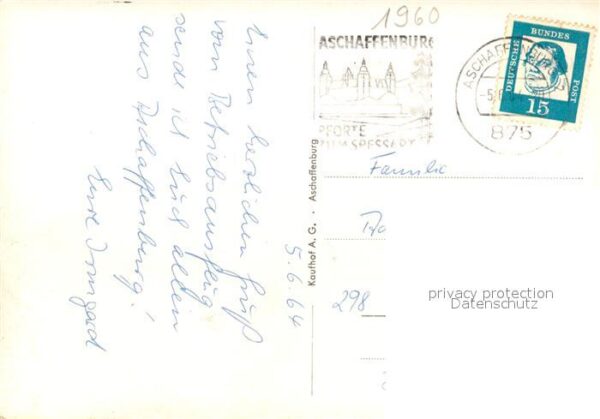 Einen herzlichen Gruß
vom Betriebsausflug
sende ich Euch allen
aus Aschaffenburg!
Eure Irmgard
5.6.64
Kaufhof A.G. · Aschaffenburg
1960
ASCHAFFENBURG
PFORTE
ZUM SPESSART
ASCHAFFENBURG
-5.6.
875
DEUTSCHE
BUNDES
POST
15
Familie
298
privacy protection
Datenschutz